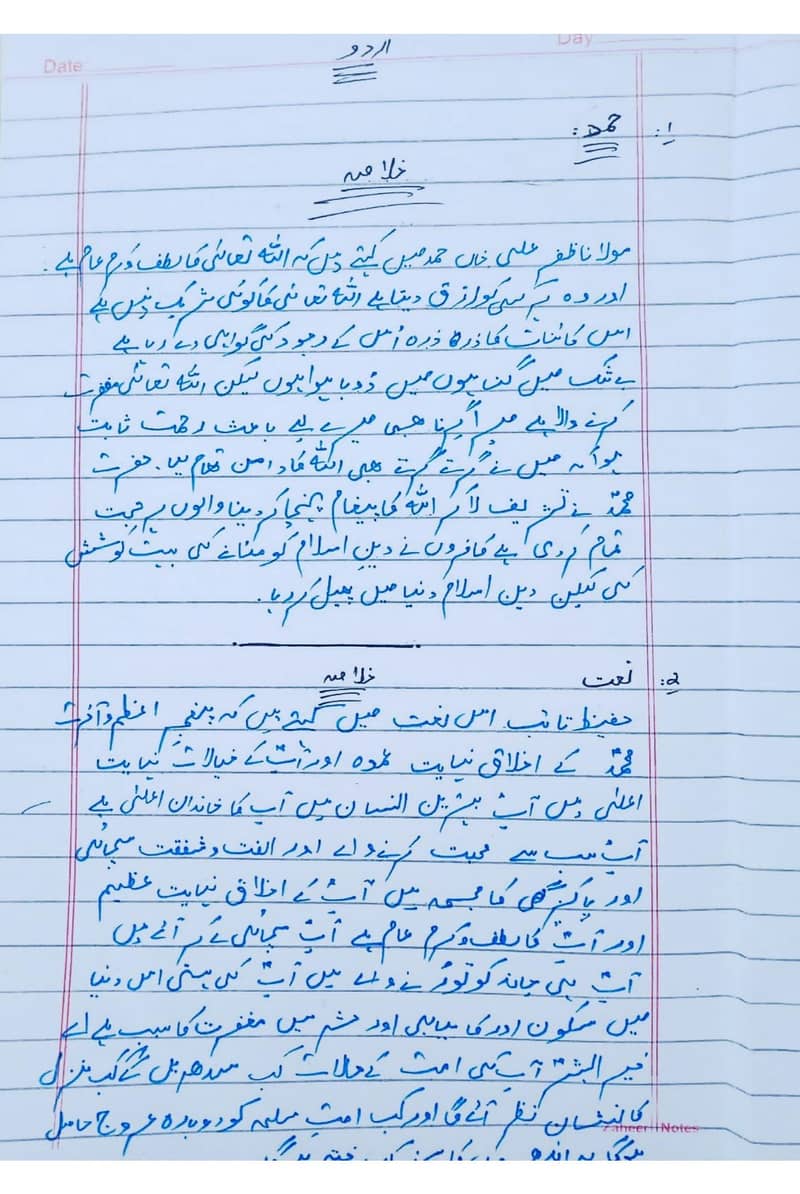 Date
Day
اردو
1: حمد:
خلاصہ
مولانا ظفر علی خاں حمد میں کہتے ہیں کہ اللہ تعالیٰ کا لطف و کرم عام ہے۔
اور وہ ہر کسی کو رزق دیتا ہے اللہ تعالیٰ کا کوئی شریک نہیں ہے
اس کائنات کا ذرہ ذرہ اُس کے وجود کی گواہی دے رہا ہے
بے شک میں گناہوں میں ڈوبا ہوا ہوں لیکن اللہ تعالیٰ مغفرت
کرنے والا ہے میرا گرنا بھی میرے لیے باعث رحمت ثابت
ہوا کہ میں نے گرتے گرتے بھی اللہ کا دامن تھام لیا۔ حضرت
محمدؐ نے تشریف لا کر اللہ کا پیغام پہنچا کر دنیا والوں پر حجت
تمام کر دی ہے کافروں نے دین اسلام کو مٹانے کی بہت کوشش
کی لیکن دین اسلام دنیا میں پھیل کر رہا۔
2: نعت
خلاصہ
حفیظ تائب اس نعت میں کہتے ہیں کہ پیغمبر اعظم و آخرت
محمدؐ کے اخلاق نہایت عمدہ اور آپؐ کے خیالات نہایت
اعلیٰ ہیں آپؐ بہترین انسان ہیں آپ کا خاندان اعلیٰ ہے
آپؐ سب سے محبت کرنے والے اور الفت و شفقت سچائی
اور پاکیزگی کا مجسمہ ہیں آپؐ کے اخلاق نہایت عظیم
اور آپؐ کا لطف و کرم عام ہے آپؐ سچائی لے کر آئے ہیں
آپؐ ہی چاند کو توڑنے والے ہیں آپؐ کی ہستی اس دنیا
میں سکون اور کامیابی اور حشر میں مغفرت کا سبب ہے اے
خیر البشرؐ آپؐ کی امت کے حالات کب سدھریں گے کب منزل
کا نشان نظر آئے گا اور کب امتِ مسلمہ کو دوبارہ عروج حاصل
Zaheer Notes
ہوگا یہ